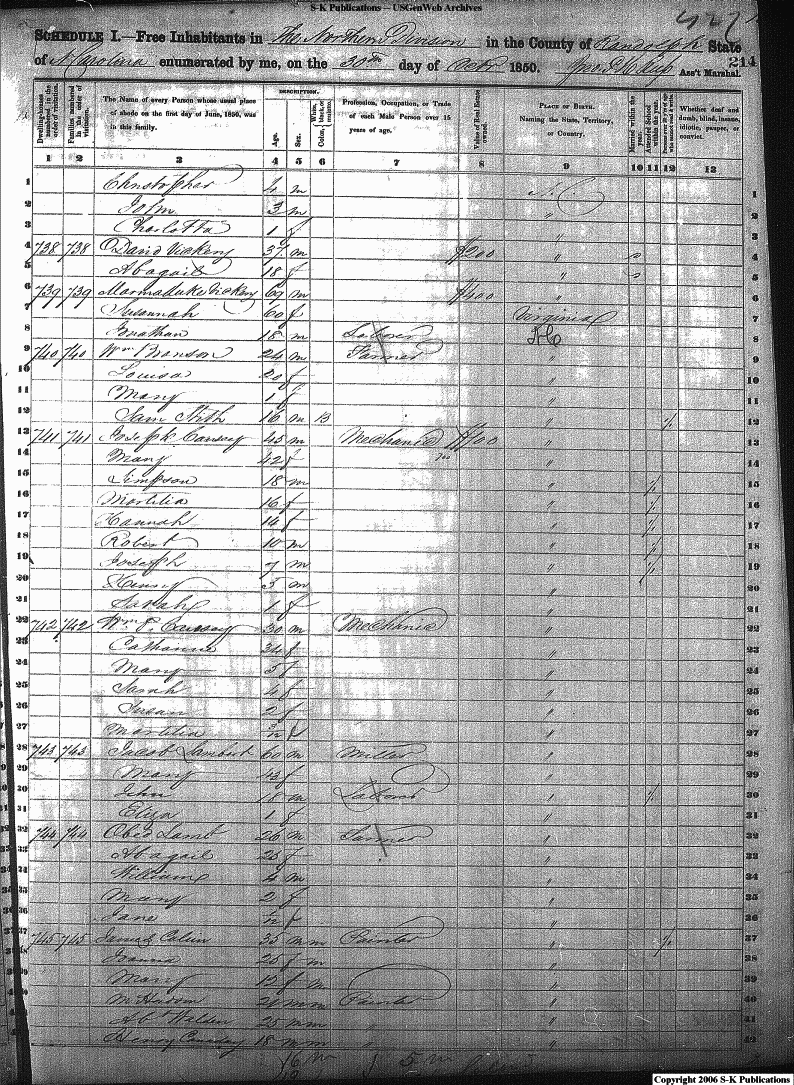 S-K Publications -- USGenWeb Archives
SCHEDULE I.—Free Inhabitants in The Northern Division in the County of Randolph State
of N. Carolina enumerated by me, on the 30th day of Octr 1850. Ass't Marshal. 214
Dwelling-houses numbered in the order of visitation.
Families numbered in the order of visitation.
The Name of every Person whose usual place of abode on the first day of June, 1850, was in this family.
DESCRIPTION.
Age.
Sex.
Color, White, black, or mulatto.
Profession, Occupation, or Trade of each Male Person over 15 years of age.
Value of Real Estate owned.
PLACE OF BIRTH. Naming the State, Territory, or Country.
Married within the year.
Attended School within the year.
Whether deaf and dumb, blind, insane, idiotic, pauper, or convict.
1 2 3 4 5 6 7 8 9 10 11 12 13
1 Christopher 4 m 1
2 John 3 m " 2
3 Charlotta 1 f " 3
4 738 738 David Vickery 37 m $200 " 4
5 Abagail 18 f " 5
6 739 739 Marmaduke Vickery 69 m $400 " 6
7 Susannah 60 f Virginia 7
8 Jonathan 18 m Laborer 8
9 740 740 Wm Branson 24 m Farmer " 9
10 Louisa 20 f " 10
11 Mary 1 f " 11
12 Sam Stith 16 m B " 12
13 741 741 Joseph Causey 45 m Mechanic $100 " 13
14 Mary 42 f " 14
15 Simpson 18 m " 15
16 Martilia 16 f " 16
17 Hannah 14 f " 17
18 Robert 10 m " 18
19 Joseph 7 m " 19
20 Henry 3 m " 20
21 Sarah 1 f " 21
22 742 742 Wm P. Causey 30 m Mechanic " 22
23 Catharine 34 f " 23
24 Mary 5 f " 24
25 Sarah 4 f " 25
26 Susan 2 f " 26
27 Martilia f " 27
28 743 743 Jacob Lambert 60 m Miller " 28
29 Mary 43 f " 29
30 John 18 m " 30
31 Eliza 1 f " 31
32 744 744 Obed Lamb 26 m Farmer " 32
33 Abagail 25 f " 33
34 William 4 m " 34
35 Mary 2 f " 35
36 Jane f " 36
37 745 745 James 35 m m Painter " 37
38 Joanna 25 f m " 38
39 Mary 12 f m " 39
40 21 m m Painter " 40
Walden 25 m m " "
Henry 18 m m " "
Copyright 2006 S-K Publications